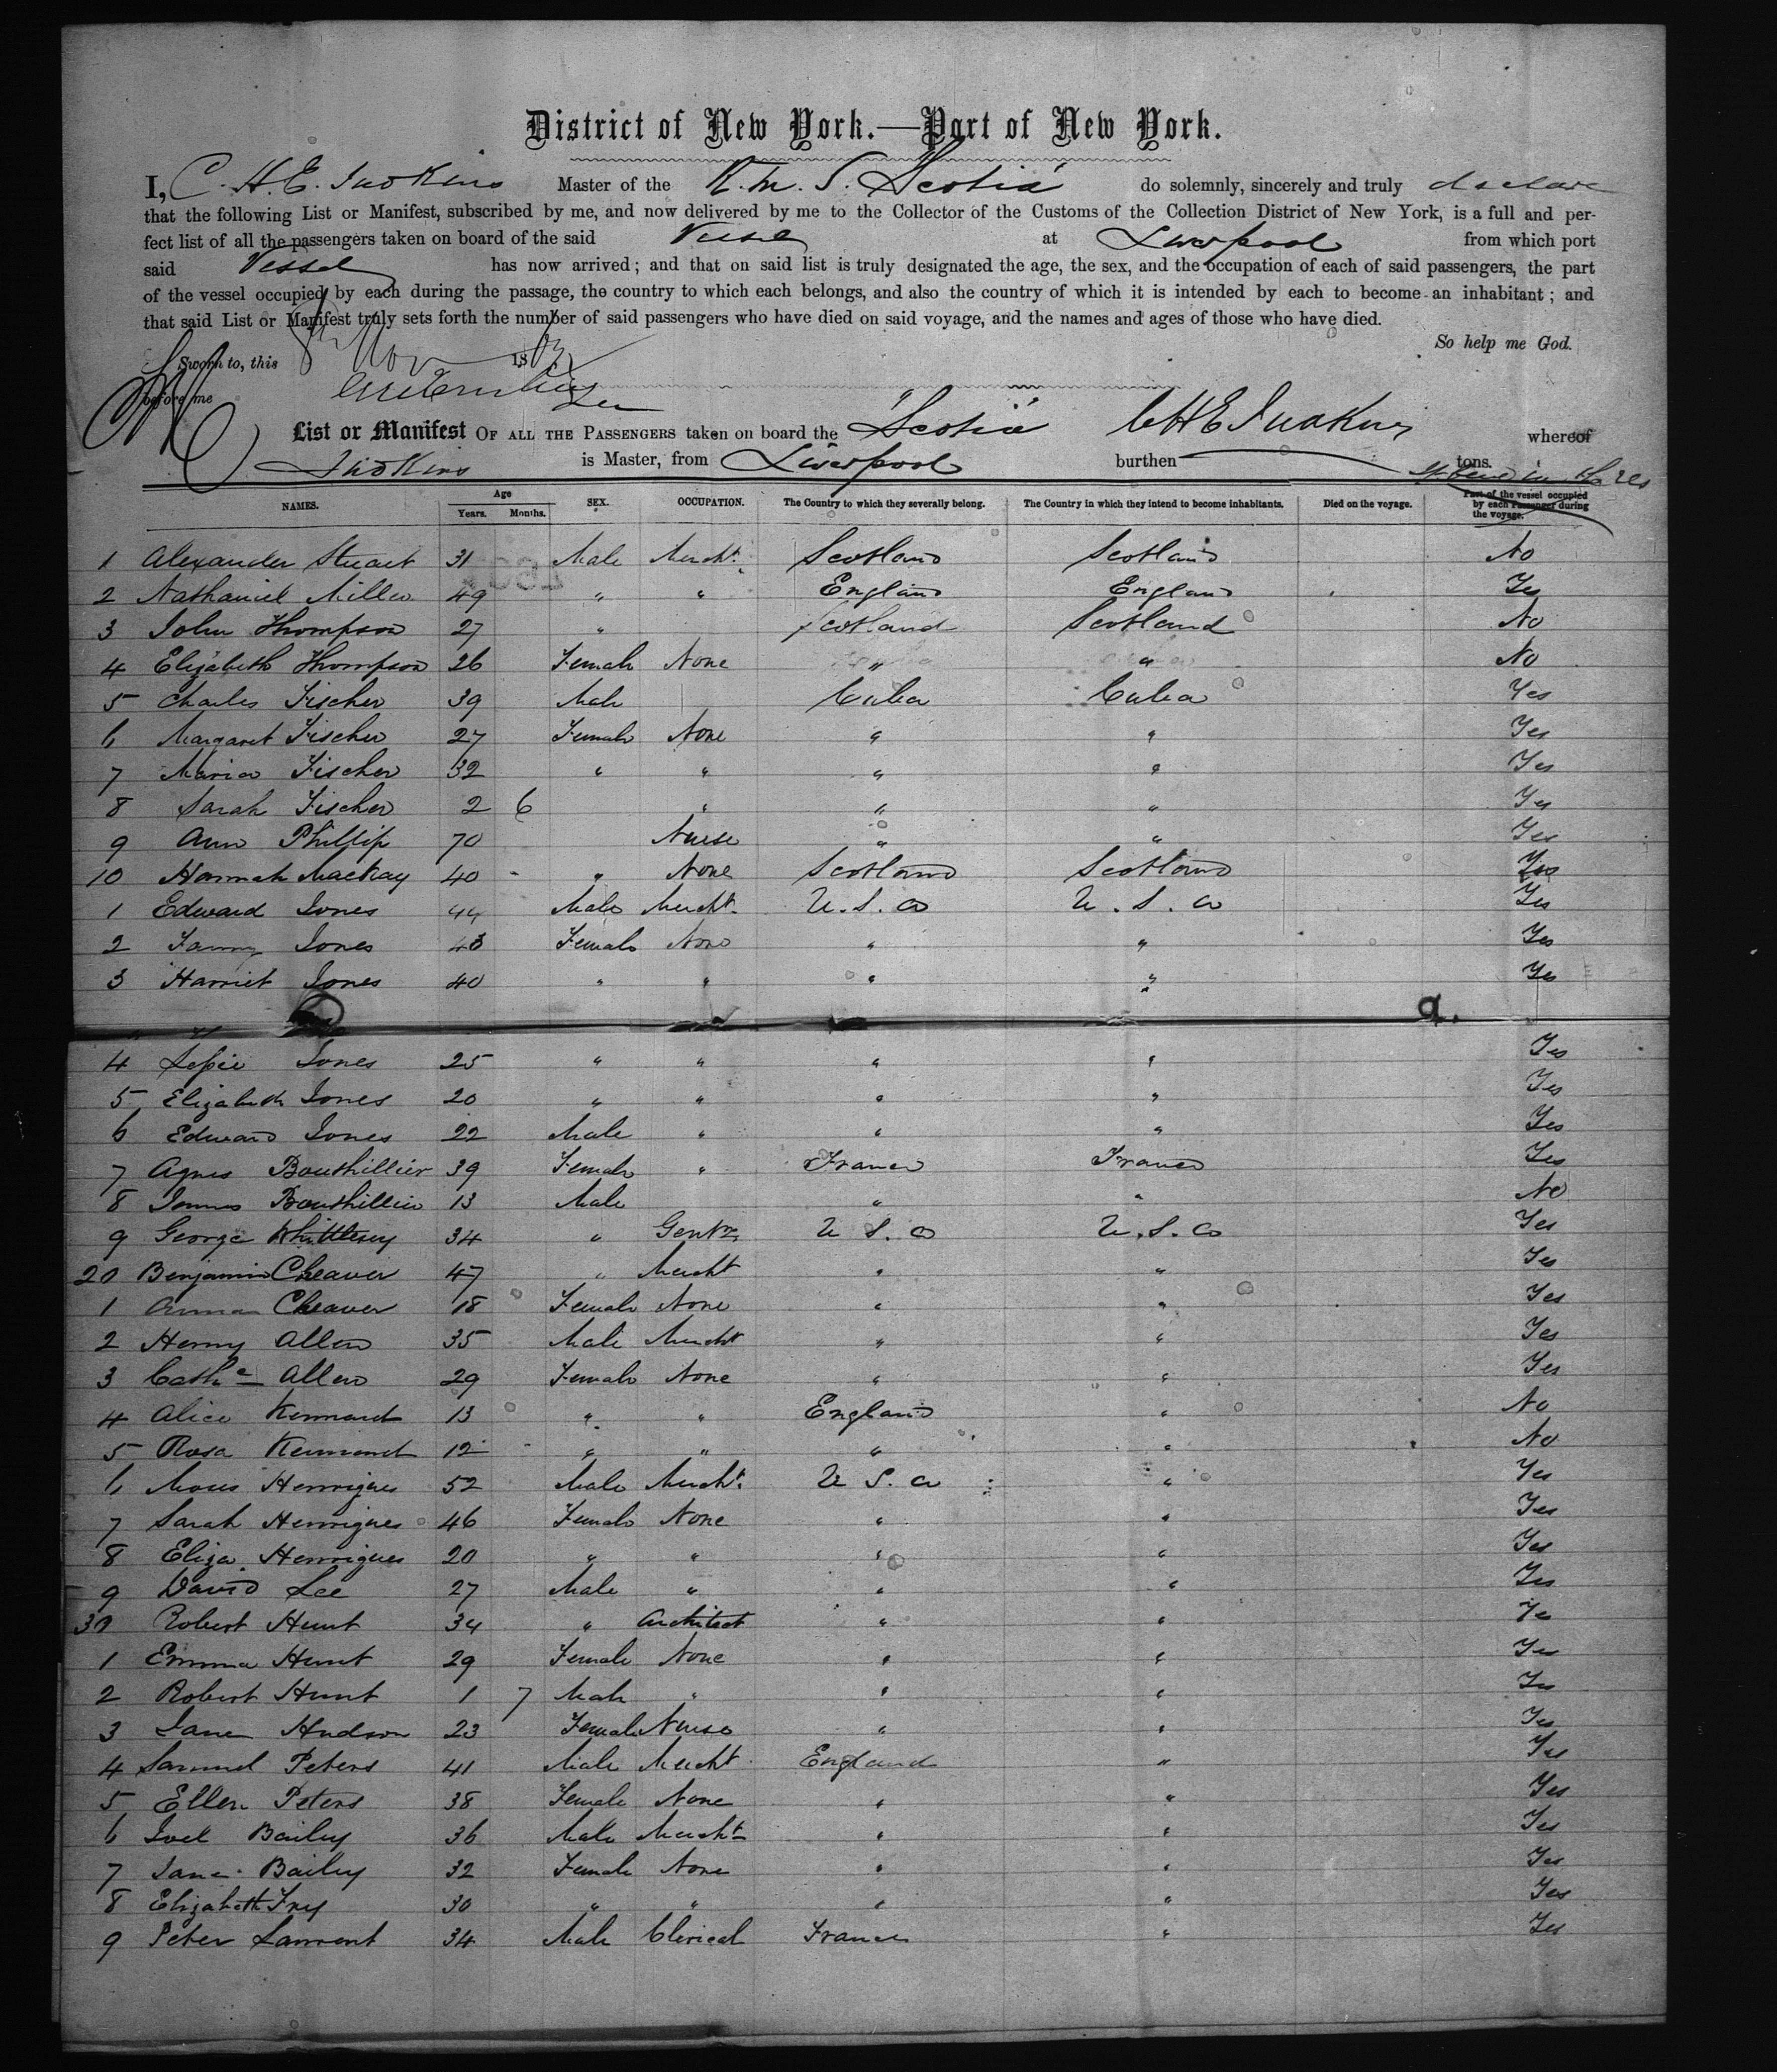 District of New York.—Port of New York.
I, C. H. E. Judkins Master of the R. M. S. Scotia do solemnly, sincerely and truly declare
that the following List or Manifest, subscribed by me, and now delivered by me to the Collector of the Customs of the Collection District of New York, is a full and per-
fect list of all the passengers taken on board of the said Vessel at Liverpool from which port
said Vessel has now arrived; and that on said list is truly designated the age, the sex, and the occupation of each of said passengers, the part
of the vessel occupied by each during the passage, the country to which each belongs, and also the country of which it is intended by each to become an inhabitant; and
that said List or Manifest truly sets forth the number of said passengers who have died on said voyage, and the names and ages of those who have died.
So help me God.
Sworn to, this Nov 186
before me
List or Manifest OF ALL THE PASSENGERS taken on board the "Scotia" C H E Judkins whereof
Judkins is Master, from Liverpool burthen tons.
NAMES. Age Years. Months. SEX. OCCUPATION. The Country to which they severally belong. The Country in which they intend to become inhabitants. Died on the voyage. Part of the vessel occupied by each Passenger during the voyage.
1 Alexander Stuart 31 Male Mercht. Scotland Scotland No
2 Nathaniel Miller 49 " " England England Yes
3 John Thompson 27 " Scotland Scotland No
4 Elizabeth Thompson 26 Female None " " No
5 Charles Fischer 39 Male Cuba Cuba Yes
6 Margaret Fischer 27 Female None " " Yes
7 Maria Fischer 32 " " " " Yes
8 Sarah Fischer 2 6 " " " Yes
9 Ann Phillip 70 Nurse " " Yes
10 Hannah Mackay 40 - " None Scotland Scotland Yes
1 Edward Jones 44 Male Mercht. U. S. a U. S. a Yes
2 Fanny Jones 43 Female None " " Yes
3 Harriet Jones 40 " " " " Yes
a.
4 Jones 25 " " " " Yes
5 Elizabeth Jones 20 " " " " Yes
6 Edward Jones 22 Male " " " Yes
7 Agnes Bouthillier 39 Female " France France Yes
8 James Bouthillier 13 Male " " No
9 George Whittlesey 34 " Gentn. U S. a U. S. a Yes
20 Benjamin Cheaver 47 " Mercht " " Yes
1 Anna Cheaver 18 Female None " " Yes
2 Henry Allen 35 Male Mercht " " Yes
3 Cathe Allen 29 Female None " " Yes
4 Alice Kennard 13 " " England " No
5 Rosa Kennard 12 " " " " No
6 Moses Henriques 52 Male Mercht. U S. a " Yes
7 Sarah Henriques 46 Female None " " Yes
8 Eliza Henriques 20 " " " " Yes
9 David Lee 27 Male " " " Yes
30 Robert Hunt 34 " Architect " " Yes
1 Emma Hunt 29 Female None " " Yes
2 Robert Hunt 1 7 Male " " " Yes
3 Jane Hudson 23 Female Nurse " " Yes
4 Samuel Peters 41 Male Mercht England " Yes
5 Ellen Peters 38 Female None " " Yes
6 Joel Bailey 36 Male Mercht " " Yes
7 Jane Bailey 32 Female None " " Yes
8 Elizabeth Fry 30 " " " " Yes
9 Peter Laurent 34 Male Clerical France " Yes